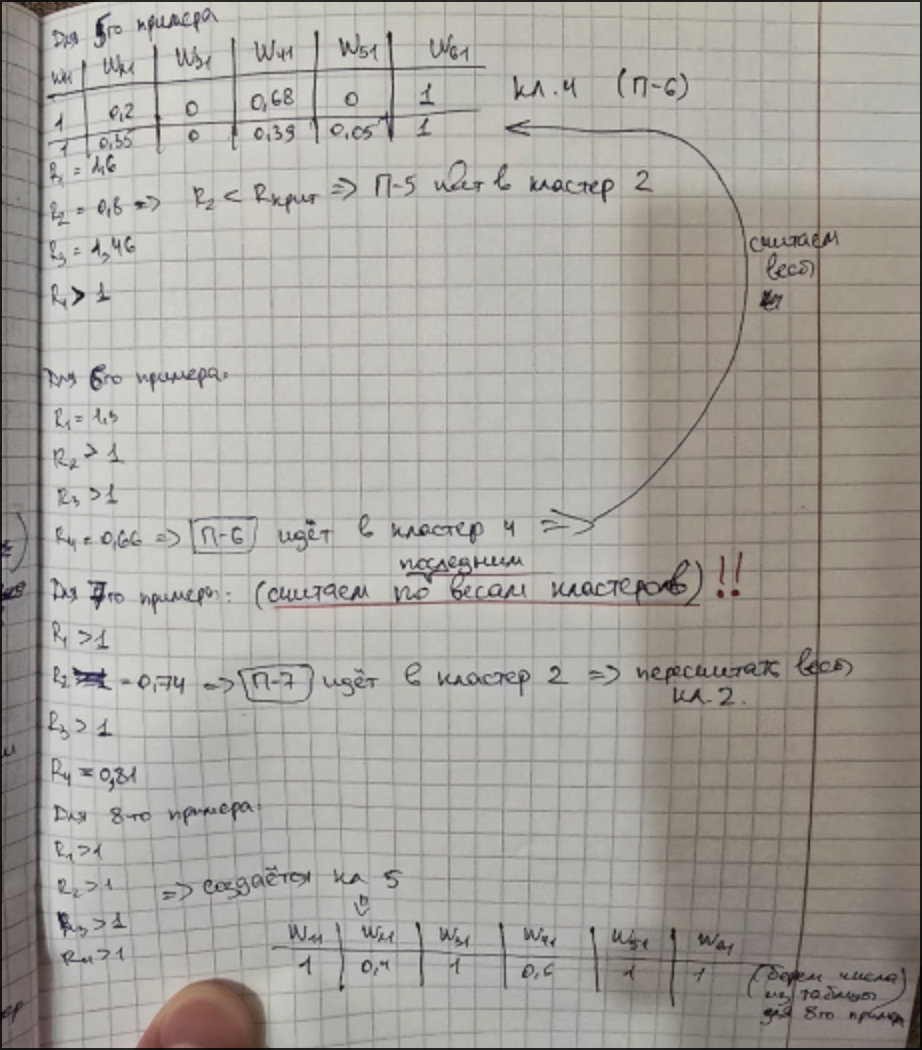 Для 5го примера
W11 W21 W31 W41 W51 W61
1 0,2 0 0,68 0 1
кл.4 (П-6)
1 0,35 0 0,39 0,05 1
R1 = 1,6
R2 = 0,8 => R2 < Rкрит => П-5 идёт в кластер 2
R3 = 1,46
R4 > 1
считаем
весы
Для 6го примера:
R1 = 1,3
R2 > 1
R3 > 1
R4 = 0,66 => П-6 идёт в кластер 4 =>
последним
Для 7го примера: (считаем по весам кластеров)!!
R1 > 1
R2 = 0,74 => П-7 идёт в кластер 2 => пересчитать весы
кл.2.
R3 > 1
R4 = 0,81
Для 8-го примера:
R1 > 1
R2 > 1 => создаётся кл 5
R3 > 1
R4 > 1
W11 W21 W31 W41 W51 W61
1 0,4 1 0,6 1 1
(берем числа
из таблицы
для 8го пример